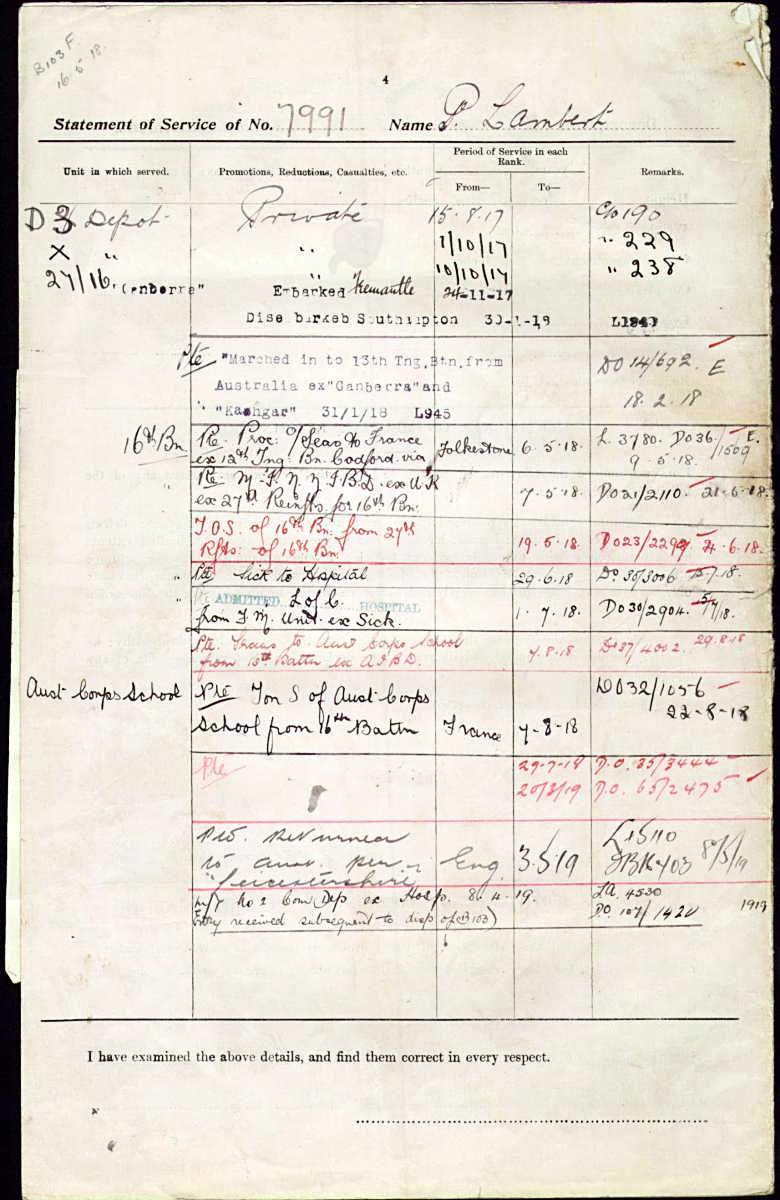 B103 F
16.5.18.
4
Statement of Service of No. 7991 Name P. Lambert
Unit in which served.
Promotions, Reductions, Casualties, etc.
Period of Service in each Rank.
From—
To—
Remarks.
D 3 Depot Private 15.8.17 C/o 190
X " " 1/10/17 " 229
27/16. " 10/10/17 " 238
Canberra" Embarked Fremantle 24-11-17
Southampton 30-1-18
Pte "Marched in to 13th Tng.Btn.from DO 14/692. E
Australia ex"Canberra"and
"Kashgar" 31/1/18 L945 18.2.18
16th Bn Pte. Proc: O/Seas to France Folkestone 6.5.18. L.3780. DO36/1509 E.
ex 13th Tng. Bn. Codford via 9.5.18.
" Pte. ex U.K 7.5.18. DO21/2110. 21.6.18.
ex 27th Reinfts for 16th Bn.
T.O.S. of 16th Bn. from 27th
Rfts: of 16th Bn. 19.5.18. DO23/2292 4.6.18.
" Pte Sick to Hospital 29.6.18 Do 30/3006 .7.18.
" ADMITTED L of C. HOSPITAL
from F. M. Unit. ex Sick. 1.7.18. DO30/2904. 15/7/18.
Pte. Trans to Aust Corps School 7.8.18 Do37/4002. 29.8.18
from 16th Battn ex A.I.B.D.
Aust Corps School Pte T on S of Aust Corps DO32/1056
School from 16th Battn France 7-8-18 22-8-18
Pte 29-7-18 D.O. 35/3444
20/3/19 D.O. 65/2475
Pte. Returned L.5110
to Aust. per Eng. 3.5.19 DBK403 8/5/19
"Leicestershire"
No 2 Com Dep ex Hosp. 8.4.19. LA 4530
Entry received subsequent to disp of (B103) Do. 107/1420 1919
I have examined the above details, and find them correct in every respect.